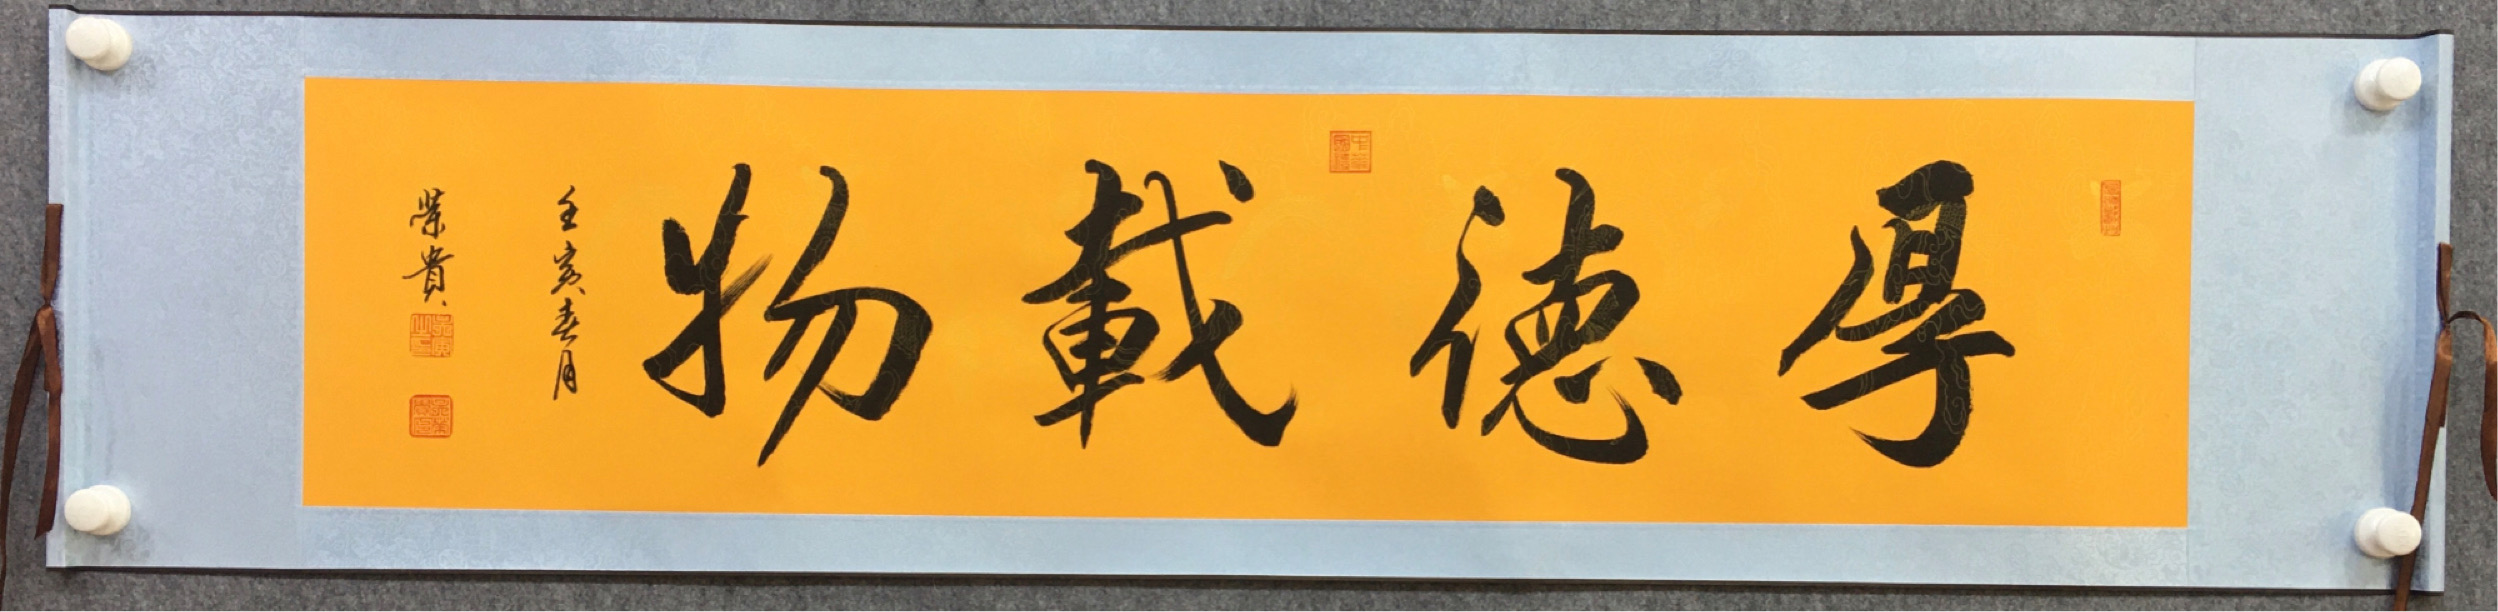 厚德載物
壬寅春月
榮貴